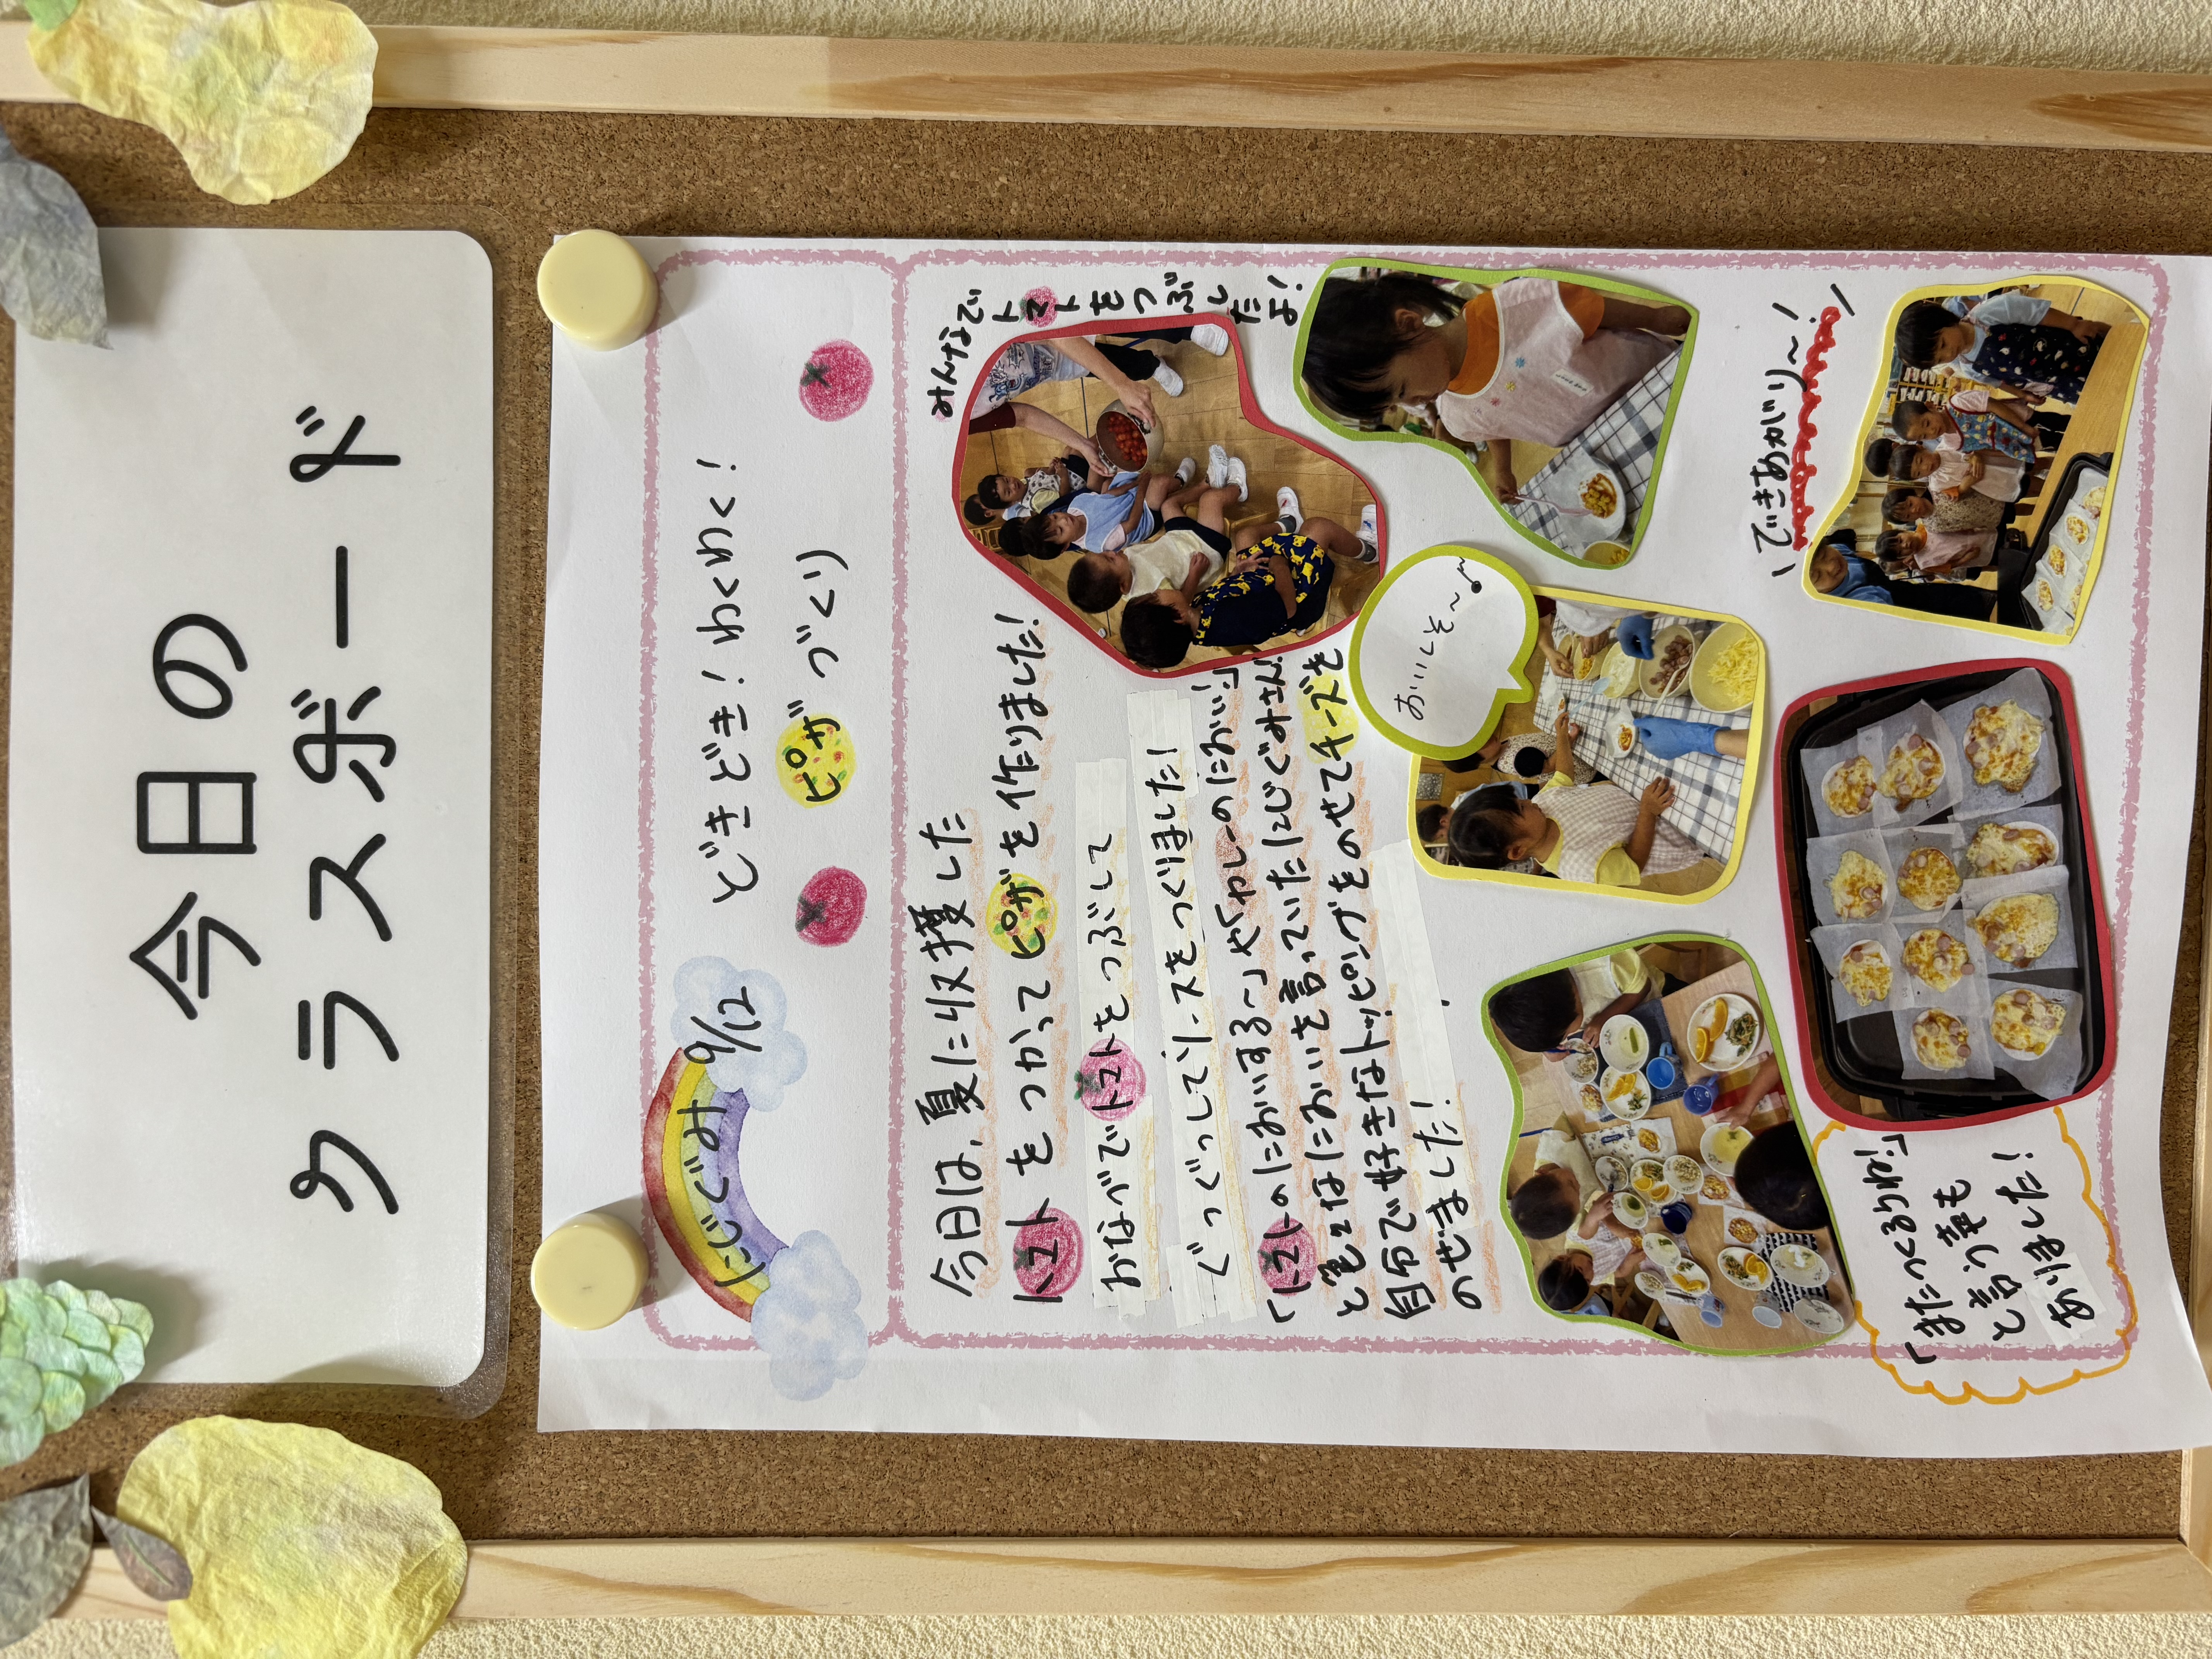 今日の
クラスボード
にじぐみ 9/12
どきどき！わくわく！
ピザづくり
今日は、夏に収穫した
トマトをつかってピザを作りました！
おなべでトマトをつぶして
ぐつぐつしてソースをつくりました！
「トマトのにおいする〜」や「カレーのにおい」
と色々なにおいを言っていたにじぐみさん。
自分で好きなトッピングをのせてチーズを
のせました！
みんなで
トマト
をつぶし
たよ！
おいしそ〜♪
\できあがり〜！/
「またつくろうね！」
と言う声も
ありました！